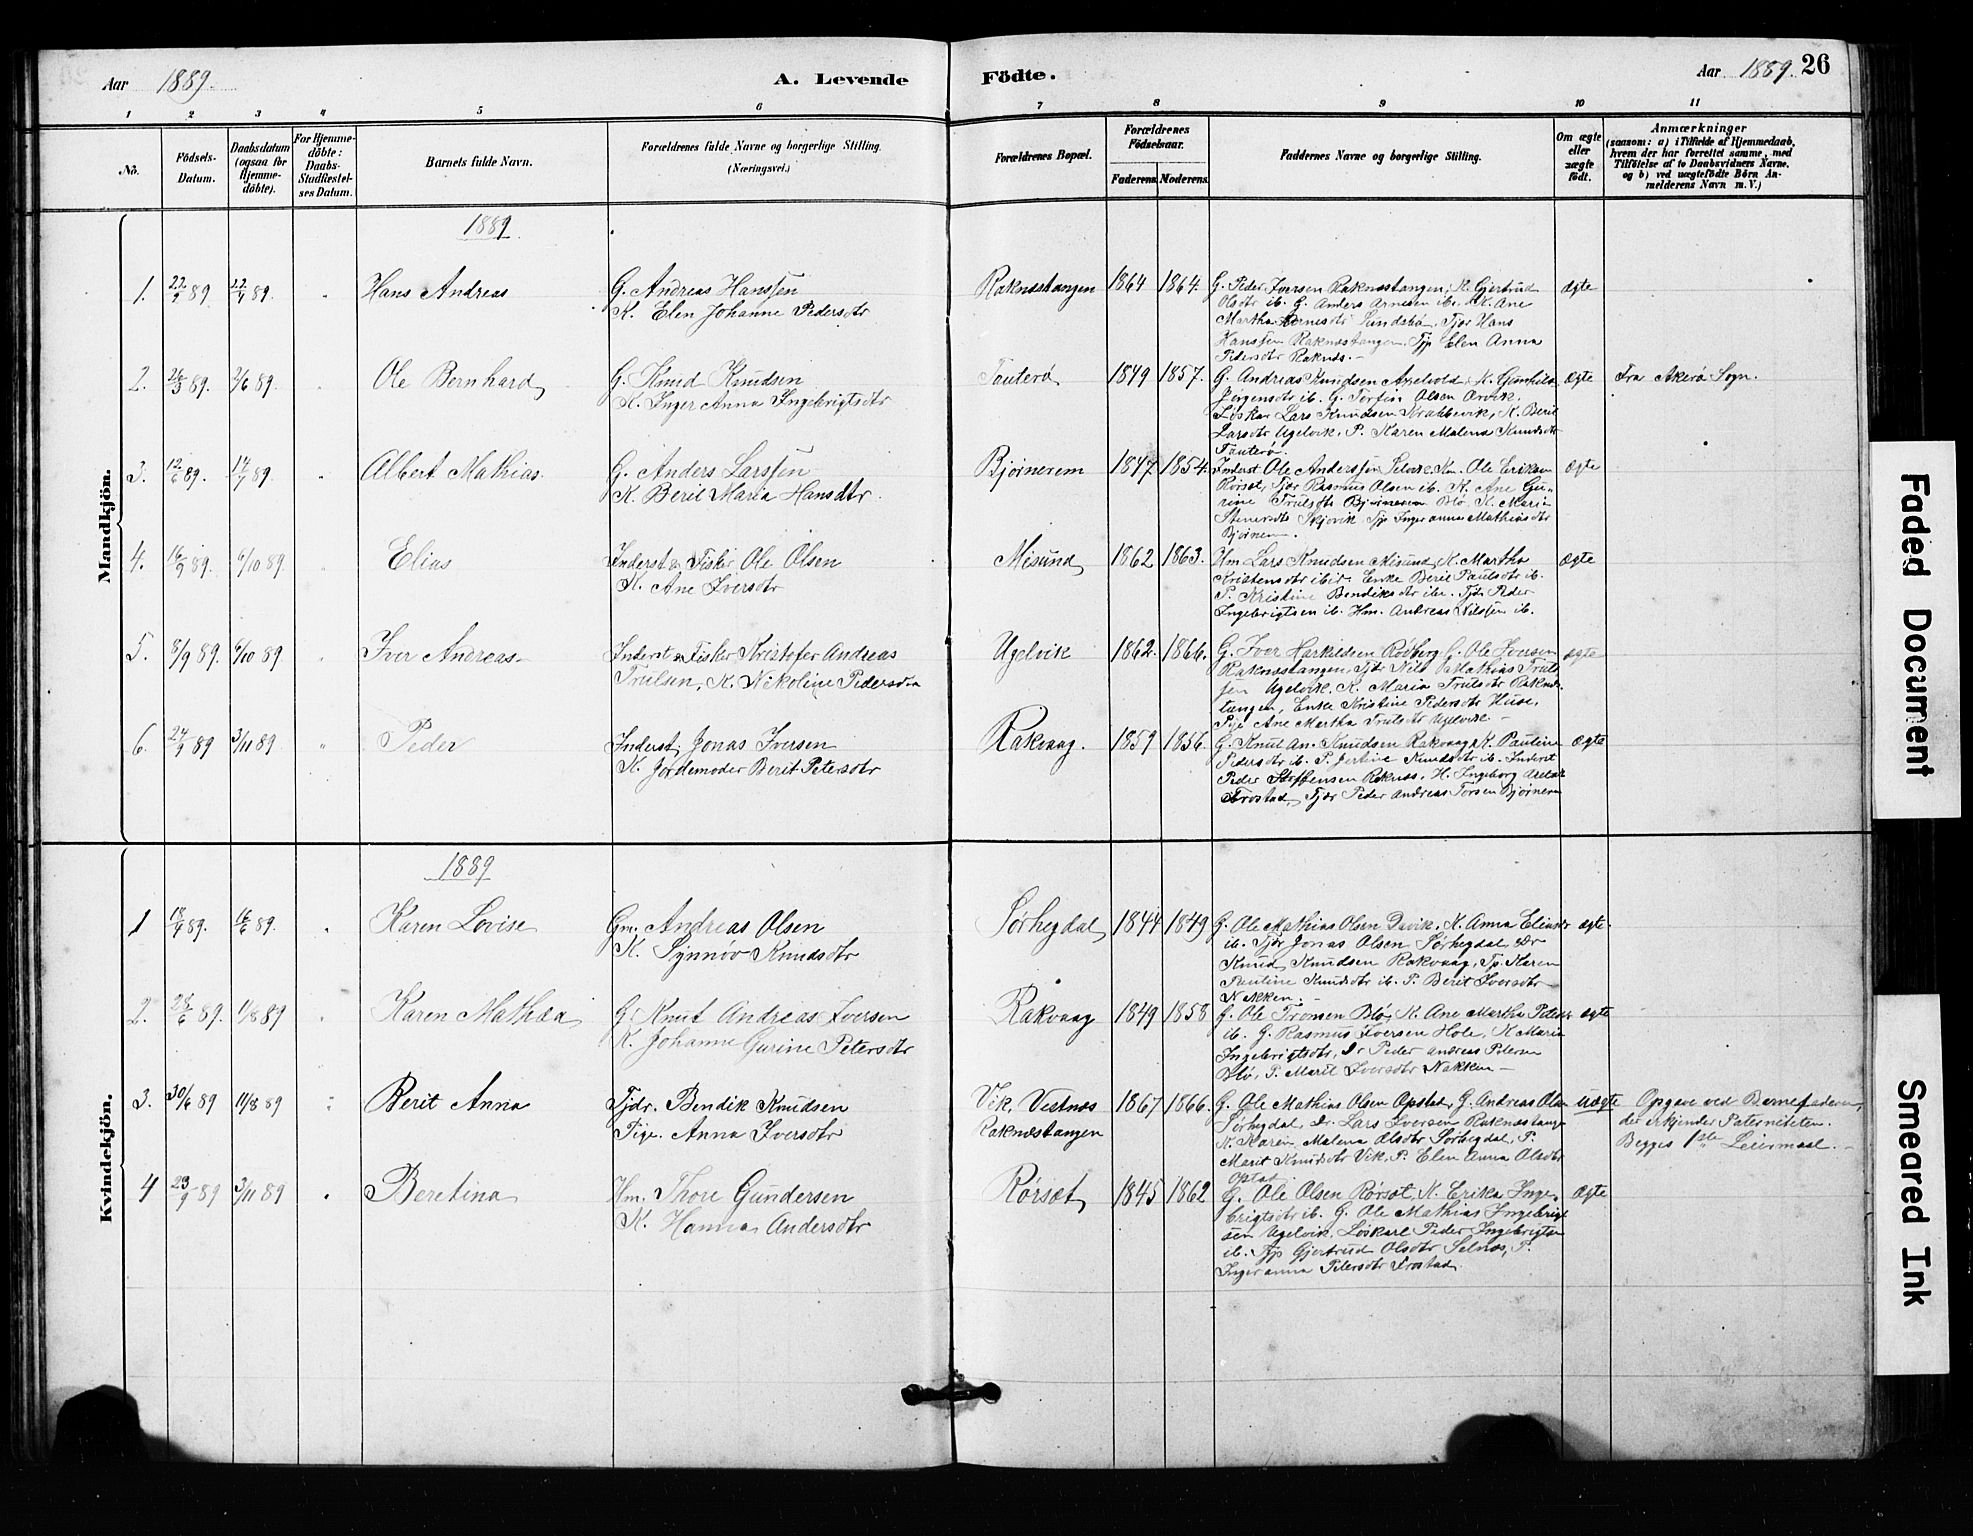 Aar 1889. A. Levende Födte. Aar 1889. 26
1 2 3 4 5 6 7 8 9 10 11
No.
Födsels-
Datum.
Daabsdatum
(ogsaa for
Hjemme-
döbte).
For Hjemme-
döbte:
Daabs-
Stadfæstel-
ses Datum.
Barnets fulde Navn.
Forældrenes fulde Navne og borgerlige Stilling.
(Næringsvei.)
Forældrenes Bopæl.
Forældrenes
Födselsaar.
Faderens. Moderens.
Faddernes Navne og borgerlige Stilling.
Om ægte
eller
uægte
födt.
Anmærkninger
(saasom: a) i Tilfælde af Hjemmedaab,
hvem der har forrettet samme, med
Tilföielse af to Daabsvidners Navne,
og b) ved uægtefödte Börn An-
melderens Navn m. V.)
Mandkjön.
1889
1. 22/2 89 22/4 89. Hans Andreas
G. Andreas Hanssen
K. Elen Johanne Pedersdtr
Raknæstangen 1864 1864.
G. Peder Iversen Raknæstangen, K. Gjertrud
Olsdtr ib. G. Anders Arnesen ib. K. Ane
Martha Arnesdtr Sundsbø. Tjgr Hans
Hanssen Raknæstangen. Tjp Elen Anna
Pedersdtr Raknæs.
ægte
2. 26/3 89. 2/6 89. Ole Bernhard
G. Knud Knudsen
K. Inger Anna Ingebrigtsdtr
Tauterø 1849 1857.
G. Andreas Knudsen K. Gunhild
Jørgensdtr ib. G. Torfin Olsen Orvik.
Løskar Lars Knudsen Krabbevik, K. Berit
Larsdtr Ugelvik. P. Karen Malena Knudsdtr
Tauterø.
ægte Fra Akerø Sogn.
3. 12/6 89. 14/7 89. Albert Mathias.
G. Anders Larssen
K. Beril Maria Hansdtr.
Bjørnerem 1847 1854.
Inderst Ole Anderssen Selvik. Km. Ole Eriksen
Rørset, Tjgr Rasmus Olsen ib. K. Ane Gu-
rine Trulsdtr Bjørnerem Blø K. Maria
Stenersdtr Skjorvik Tjp Inger anna Mathiasdtr
Bjørnerem.
ægte
4. 16/9 89. 6/10 89. Elias
Inderst & Fisker Ole Olsen
K. Ane Iversdtr
Misund 1862 1863.
Hm Lars Knudsen Misund, K. Martha
Kristensdtr ibid. Enke Beril Paulsdtr ib.
P. Kristine Bendiksdtr ib. Tjgr Peder
Ingebrigtsen ib. Hm. Andreas Nilssen ib.
ægte
5. 8/9 89. 6/10 89. Iver Andreas
Inderst & Fisker Kristofer Andreas
Trulsen, K. Nikoline Pedersdtr
Ugelvik 1862. 1866.
G. Iver Harkildsen Rødberg G. Ole Iversen
Raknæstangen, Tjgr Nils Mathias Trul-
sen Ugelvik. K. Maria Trulsdtr Raknæs-
tangen, Enke Kristine Pedersdtr Huse,
Pige Ane Martha Trulsdtr Ugelvik
ægte
6. 24/9 89 3/11 89. Peder
Inderst Jonas Iversen
K. Jordemoder Berit Petersdtr
Rakvaag. 1859 1856.
G. Knut An. Knudsen Rakvaag K. Pauline
Pedersdtr ib. P. Jertine Knudsdtr ib. Inderst
Peder Steffensen Raknæs. H. Ingeborg
Frostad, Tjgr Peder Andreas Torsen Bjørnerem
ægte
Kvindekjön.
1889
1 18/4 89. 16/6 89. Karen Lovise
Gm. Andreas Olsen
K. Synnøv Knudsdtr
Sørhegdal 1844 1849
G. Ole Mathias Olsen Davik, K. Anna Eliasdtr
ib. Tjgr Jonas Olsen Sørhegdal, Dr
Knud Knudsen Rakvaag, Tp. Karen
Pauline Knudsdtr ib. P. Berit Iversdtr
Nakken.
ægte
2. 28/6 89. 11/8 89 Karen Mathea
G. Knut Andreas Iversen
K. Johanne Gurine Petersdtr
Rakvaag 1849 1858
G. Ole Tronsen Blø, K. Ane Martha Pedersdtr
ib. G. Rasmus Iversen Hole, K Maria
Ingebrigtsdtr, Dr Peder Andreas Pedersen
Blø, P. Marit Iversdtr Nakken
ægte
3. 30/6 89 11/8 89 Berit Anna
Tjdr. Bendik Knudsen
Pige. Anna Iversdtr
Vik, Vestnæs
Raknæstangen
1867 1866.
G. Ole Mathias Olsen Opstad, G. Andreas Olsen
Sørhegdal, Dr. Lars Iversen Raknæstange
K. Karen Malena Olsdtr Sørhegdal, P.
Marit Knudsdtr Vik, P. Elen Anna Olsdtr
Opstad.
uægte
Opgave ved Barnefaderen,
der erkjender Paterniteten.
Begges 1ste Leiermaal.
4 29/9 89 3/11 89 Beretina
Hm. Thore Gundersen
K. Hanna Andersdtr
Rørsæt 1845 1862
G. Ole Olsen Rørsæt, K. Erika Inge-
brigtsdtr ib. G. Ole Mathias Ingebrigt
sen Ugelvik, Løskarl Peder Ingebrigtsen
ib. Tjp Gjertrud Olsdtr Selnæs, P.
Inger anna Petersdtr Frostad.
ægte
Faded Document
Smeared Ink